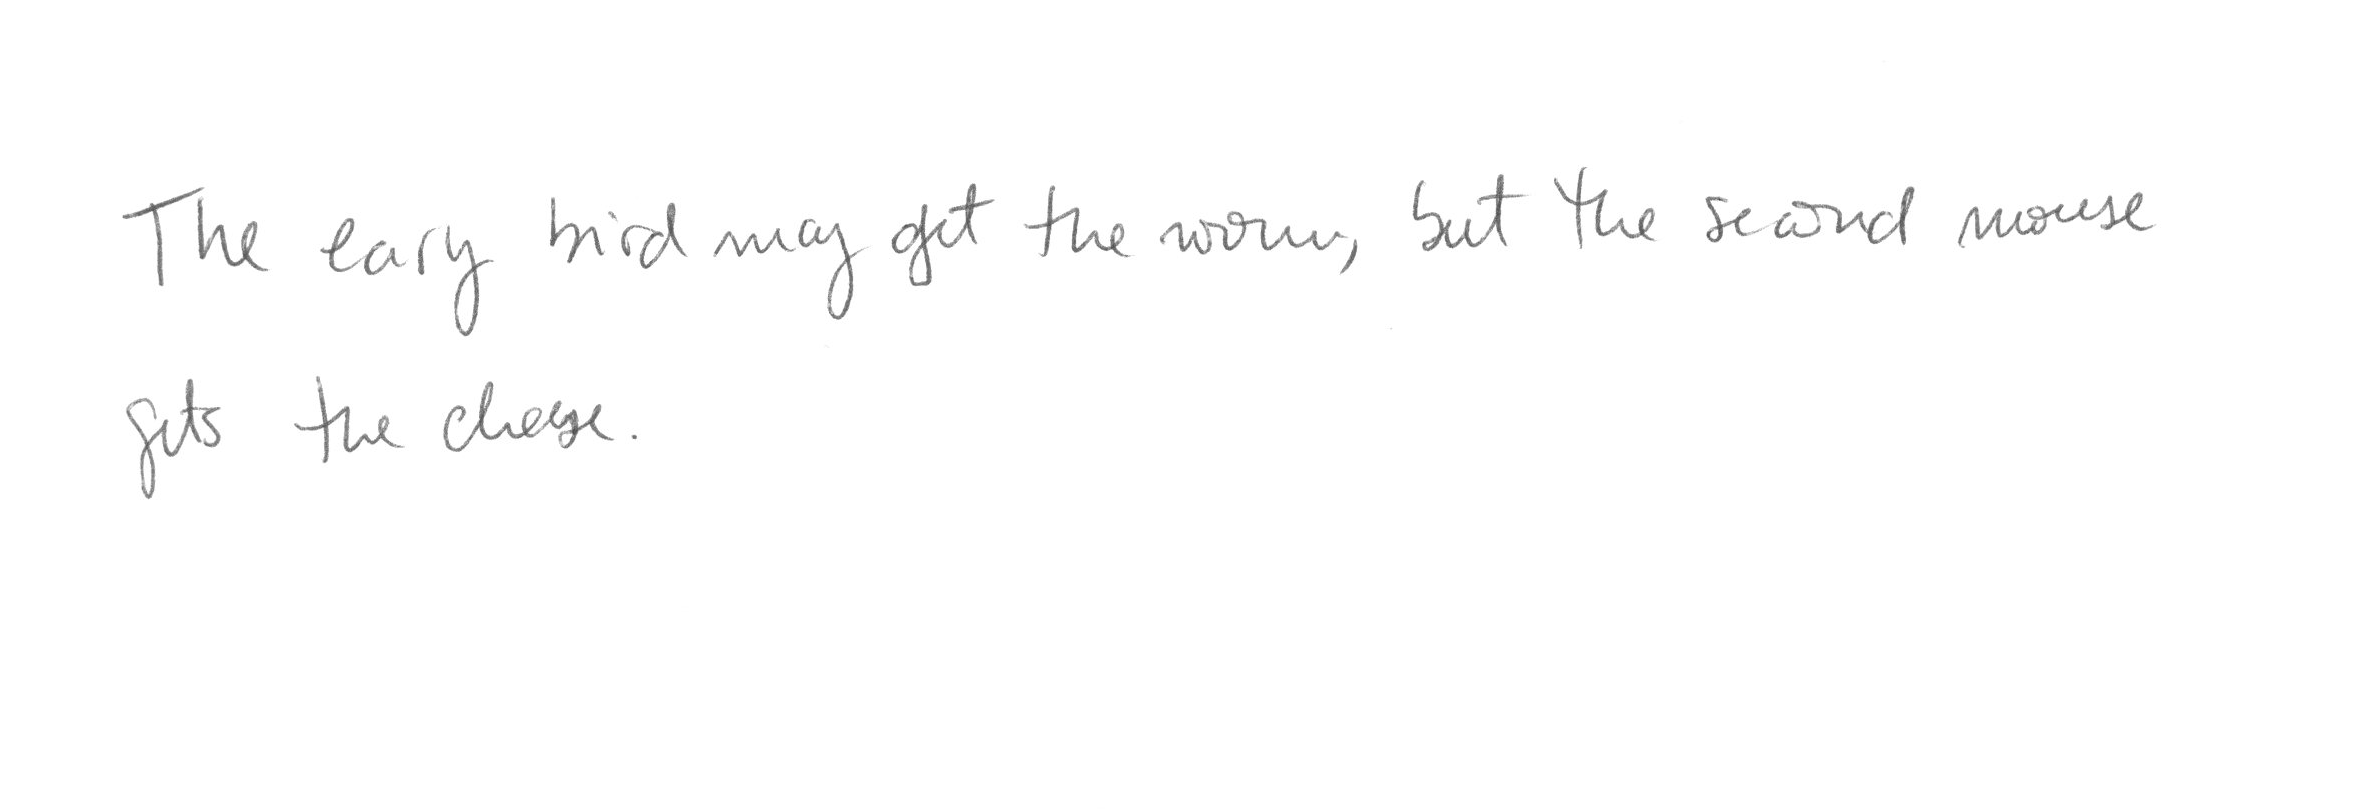 The eary bird may get the worm, but the second mouse
gets the cheese.